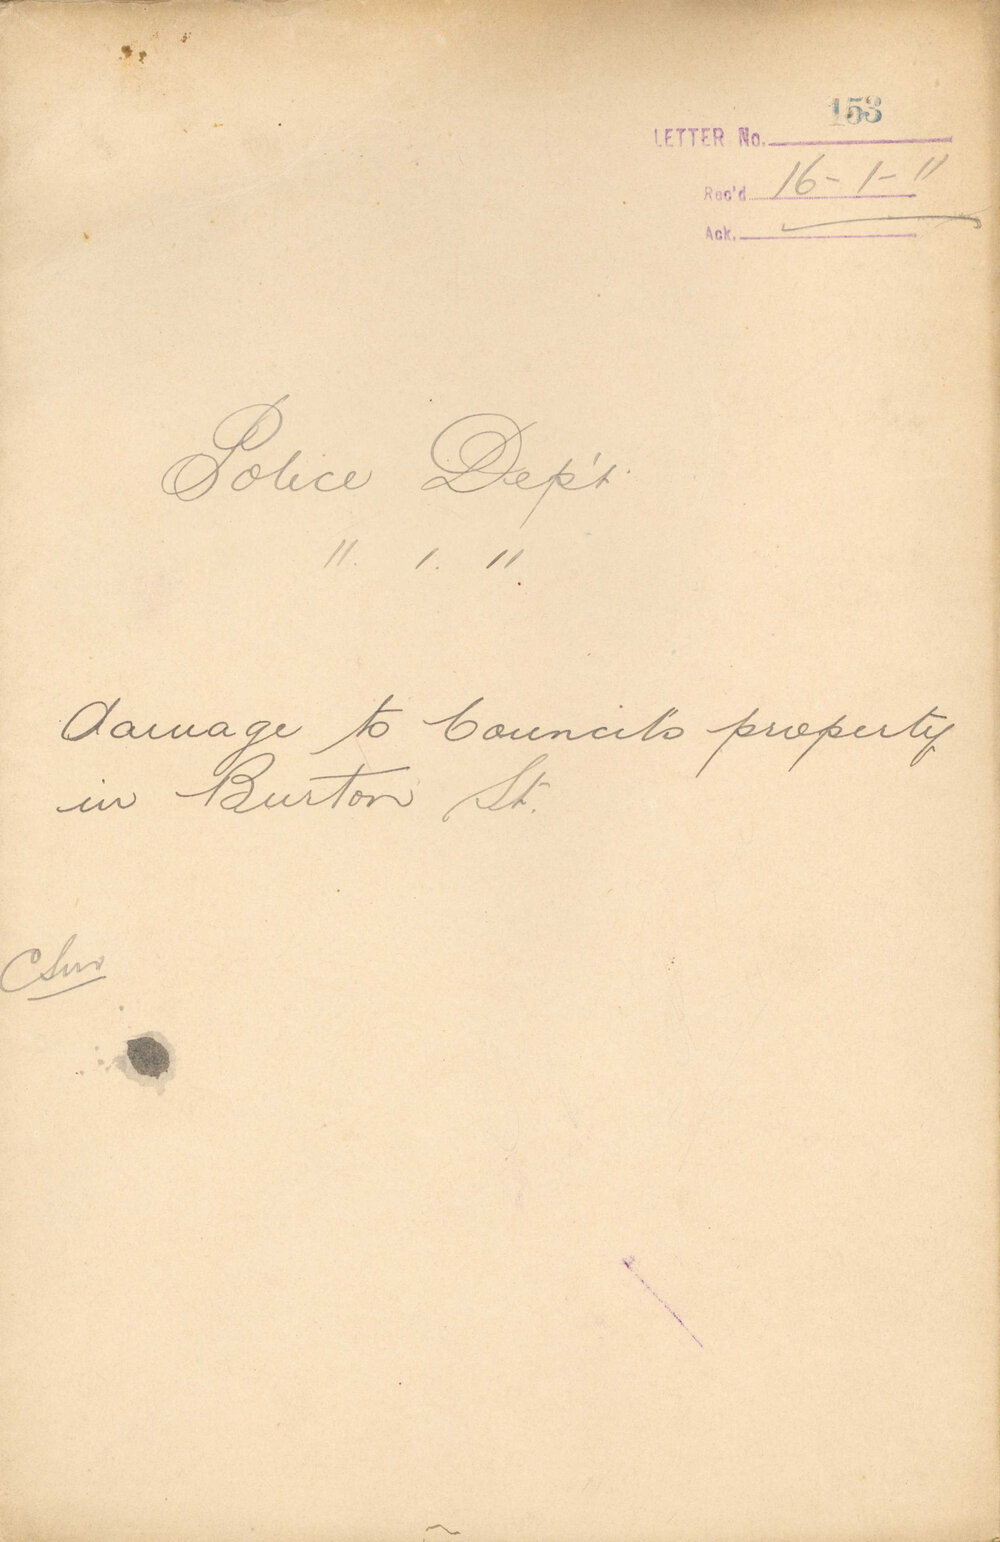 153
LETTER No.
Rec'd 16-1-11
Ack.
Police Dep't
11. 1. 11
damage to Council's property
in Burton St.